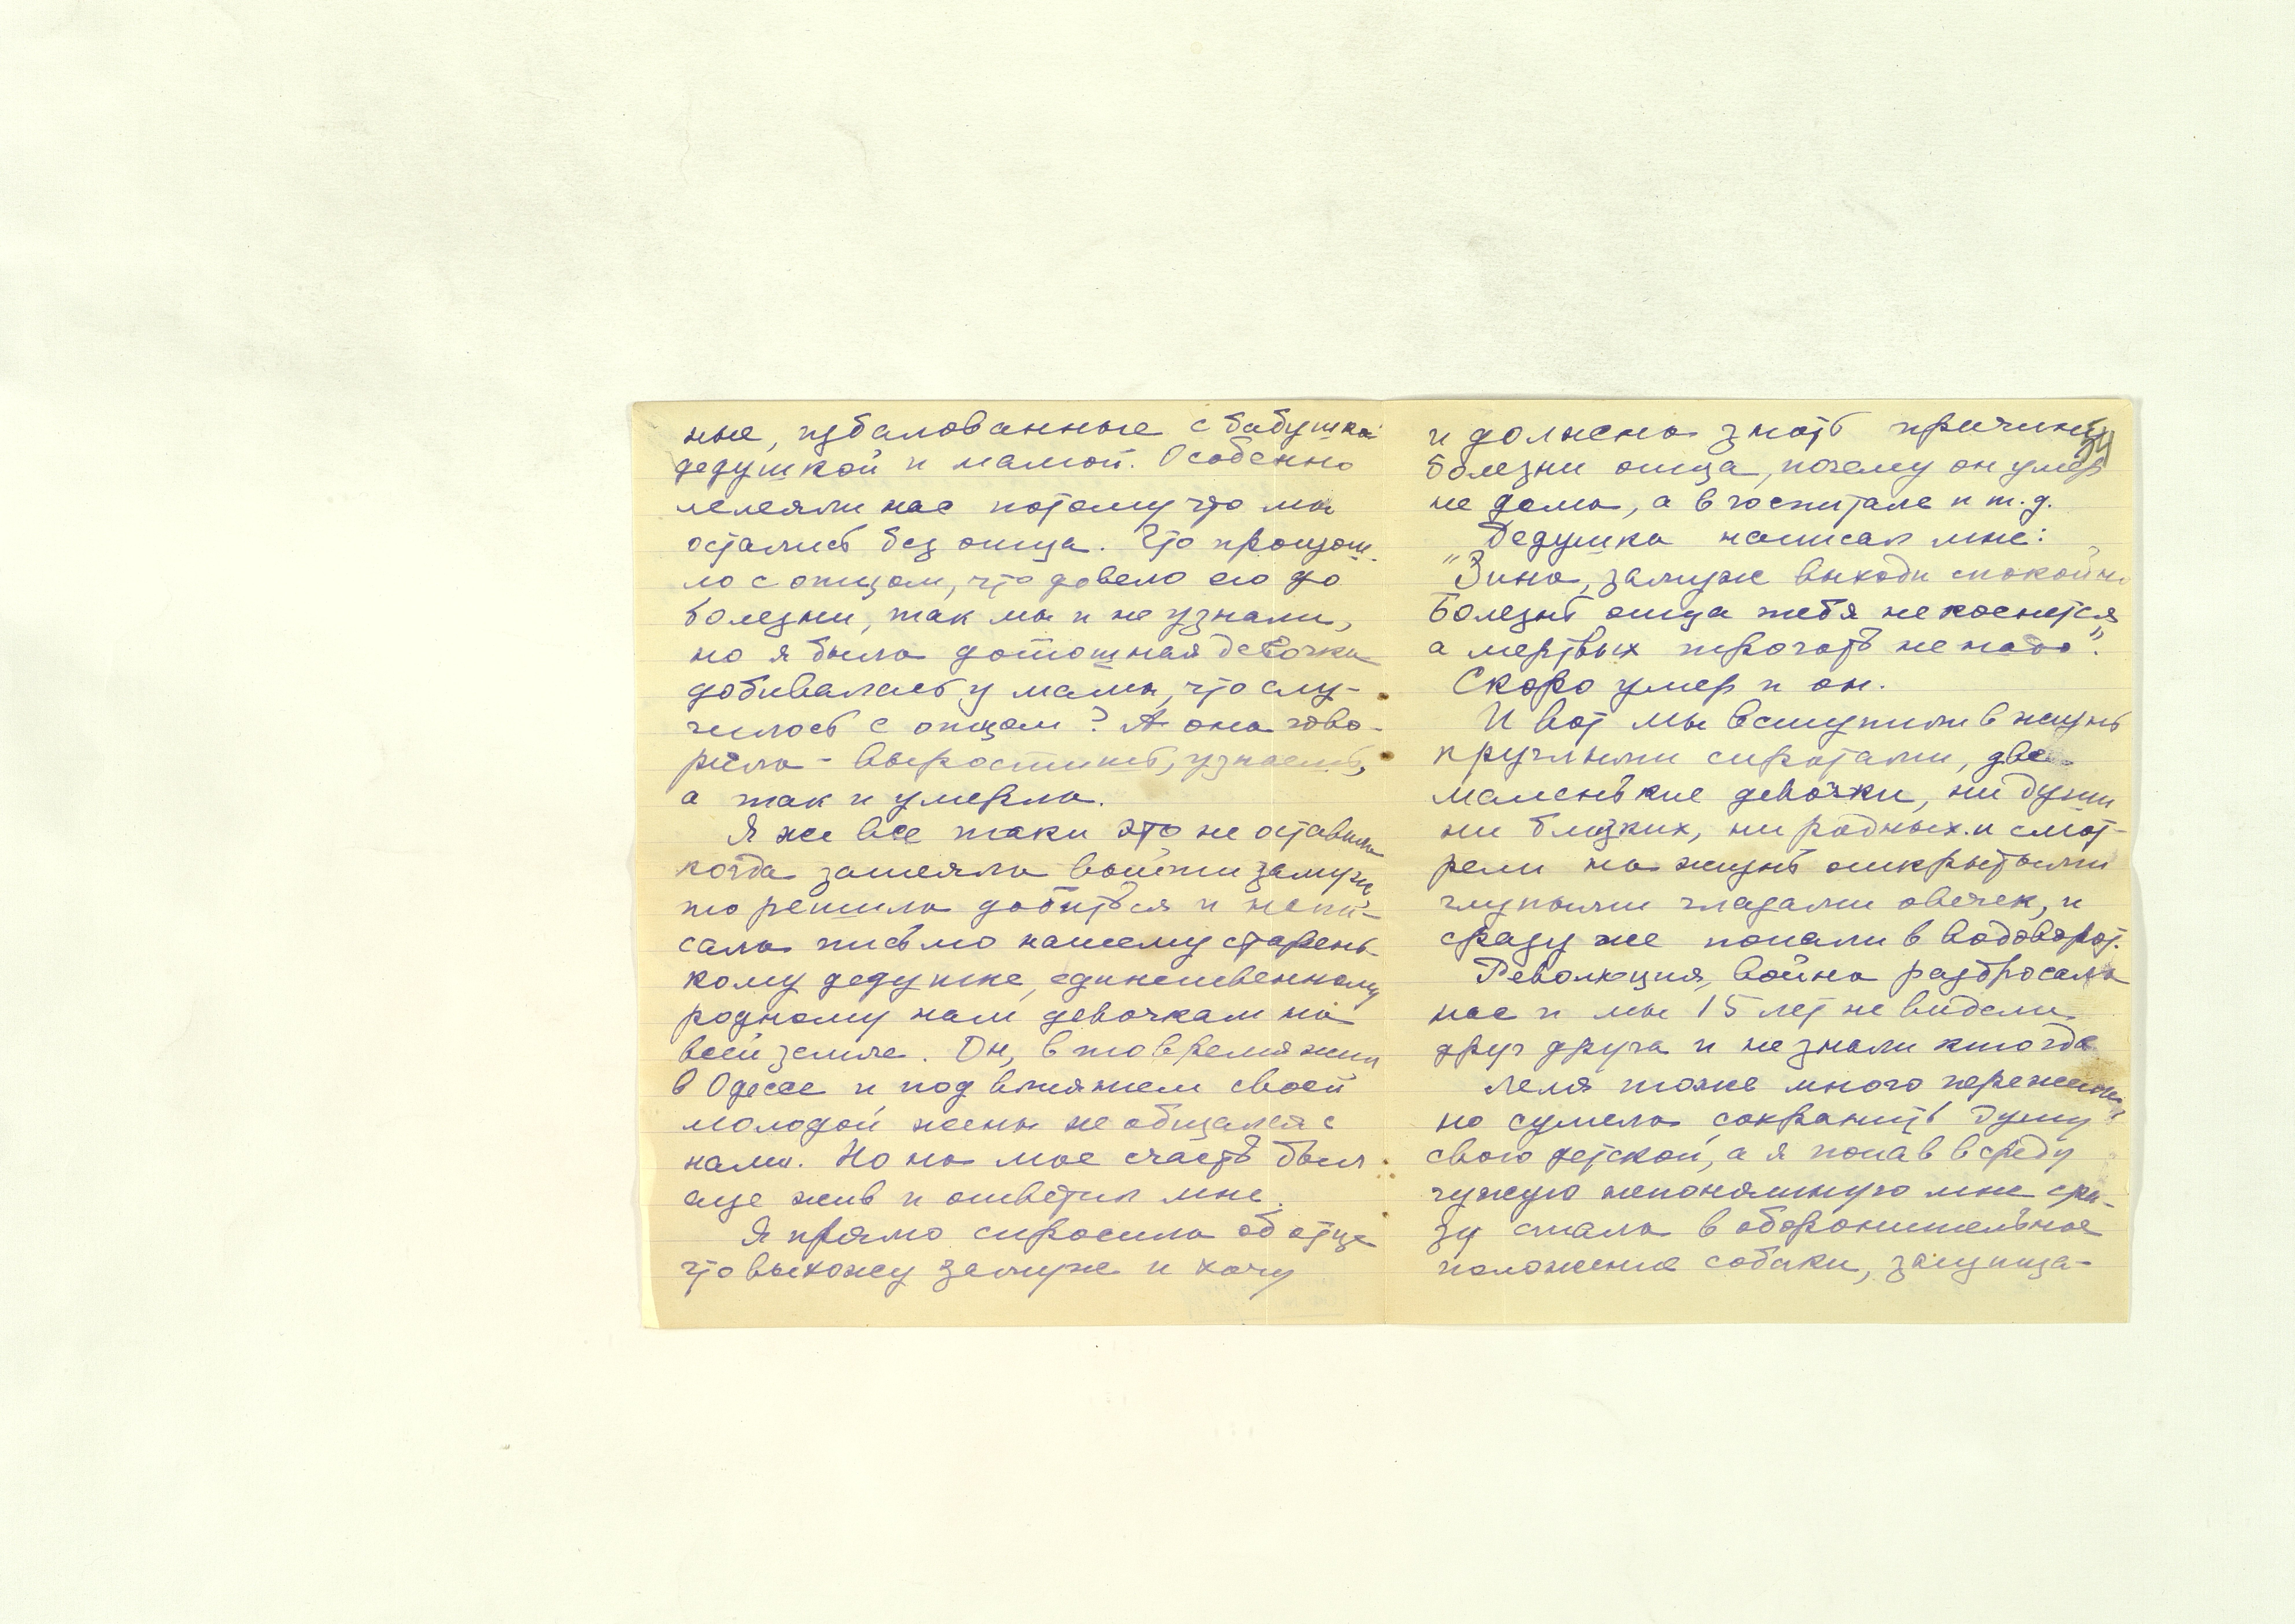 ные, избалованные с бабушкой
дедушкой и мамой. Особенно
лелеяли нас потому что мы
остались без отца. Что произош-
ло с отцом, что довело его до
болезни, так мы и не узнали,
но я была дотошная девочка
добивалась у мамы, что слу-
чилось с отцом? А она гово-
рила - выростишь, узнаешь,
а так и умерла.
Я же все таки это не оставила
когда затеяла выйти замуж,
то решила добиться и напи-
сала письмо нашему старень-
кому дедушке, единственному
родному нам девочкам на
всей земле. Он, в то время жил
в Одессе и под влиянием своей
молодой жены не общался с
нами. Но на мое счастье был
еще жив и ответил мне.
Я прямо спросила об отце
что выхожу замуж и хочу
и должна знать причину
34
болезни отца, почему он умер
не дома, а в госпитале и т.д.
Дедушка написал мне:
"Зина, замуж выходи спокойно
Болезнь отца тебя не коснется
а мертвых трогать не надо".
Скоро умер и он.
И вот мы вступили в жизнь
круглыми сиротами, две
маленькие девочки, ни души
ни близких, ни родных и смот-
рели на жизнь открытыми
глупыми глазами овечек, и
сразу же попали в водоворот.
Революция, война разбросала
нас и мы 15 лет не видели
друг друга и не знали кто где
Леля тоже много пережила
но сумела сохранить душу
свою детской, а я попав в среду
чужую непонятную мне сра-
зу стала в оборонительное
положение собаки, защища-